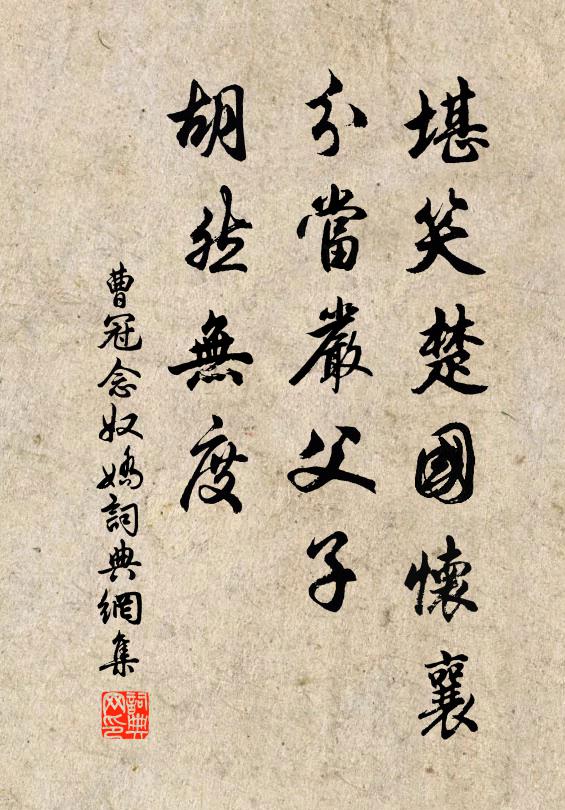 堪笑楚國懷襄
分當嚴父子
胡然無度
曹冠念奴嬌詞典網集
詞典網印